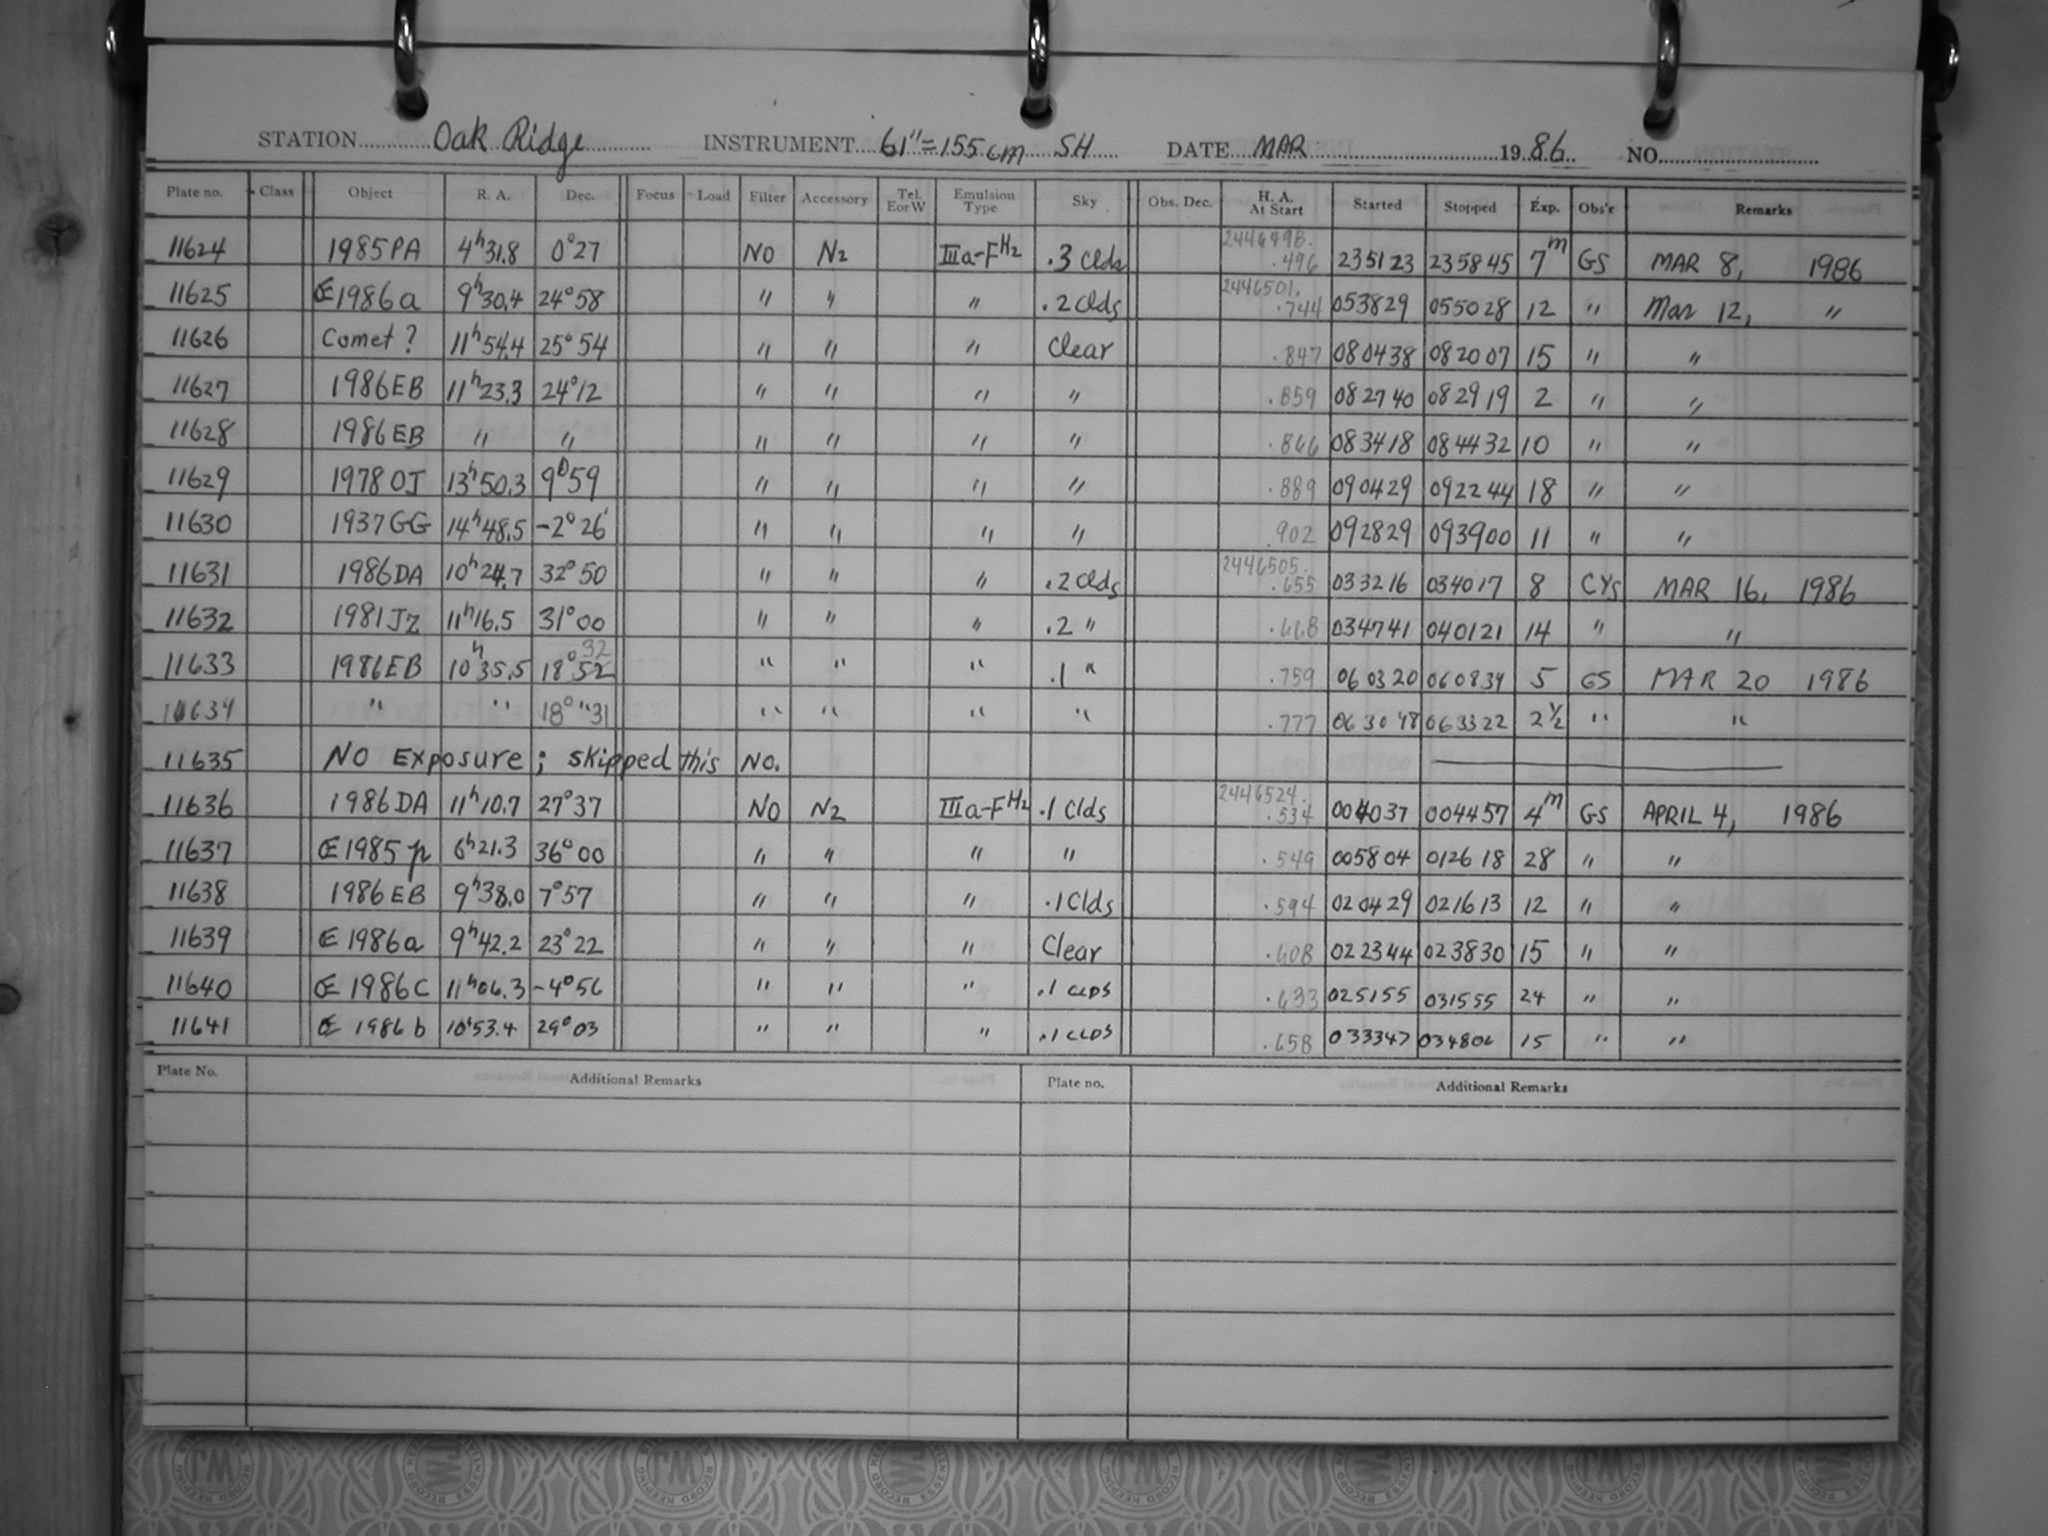 STATION Oak Ridge INSTRUMENT 61"=155cm SH DATE MAR 1986 NO.
Plate no. Class Object R. A. Dec. Focus Load Filter Accessory Tel. E or W Emulsion Type Sky Obs. Dec. H. A. At Start Started Stopped Exp. Obs'r Remarks
11624 1985PA 4h31.8 0°27 NO N2 IIIa-F H2 .3 Clds 2446498. .496 235123 235845 7m GS MAR 8, 1986
11625 ☄1986a 9h30.4 24°58 " " " .2 Clds 2446501. .744 053829 055028 12 " Mar 12, "
11626 Comet? 11h54.4 25°54 " " " Clear .847 080438 082007 15 " "
11627 1986EB 11h23.3 24°12 " " " " .859 082740 082919 2 " "
11628 1986EB " " " " " " .866 083418 084432 10 " "
11629 1978OJ 13h50.3 9°59 " " " " .889 090429 092244 18 " "
11630 1937GG 14h48.5 -2°26' " " " " .902 092829 093900 11 " "
11631 1986DA 10h24.7 32°50 " " " .2 Clds 2446505. .655 033216 034017 8 CYS MAR 16, 1986
11632 1981JZ 11h16.5 31°00 " " " .2 " .668 034741 040121 14 " "
11633 1986EB 10h35.5 18°52 32 " " " .1 " .759 060320 060834 5 GS MAR 20 1986
11634 " " 18°31 " " " " .777 063048 063322 2½ " "
11635 NO Exposure; skipped this NO.
11636 1986DA 11h10.7 27°37 NO N2 IIIa-F H2 .1 Clds 2446524. .534 004037 004457 4m GS APRIL 4, 1986
11637 ☄1985p 6h21.3 36°00 " " " " .549 005804 012618 28 " "
11638 1986EB 9h38.0 7°57 " " " .1 Clds .594 020429 021613 12 " "
11639 ☄1986a 9h42.2 23°22 " " " Clear .608 022344 023830 15 " "
11640 ☄1986C 11h06.3 -4°56 " " " .1 CLDS .633 025155 031555 24 " "
11641 ☄1986b 10h53.4 29°03 " " " .1 CLDS .658 033347 034806 15 " "
Plate No. Additional Remarks Plate no. Additional Remarks